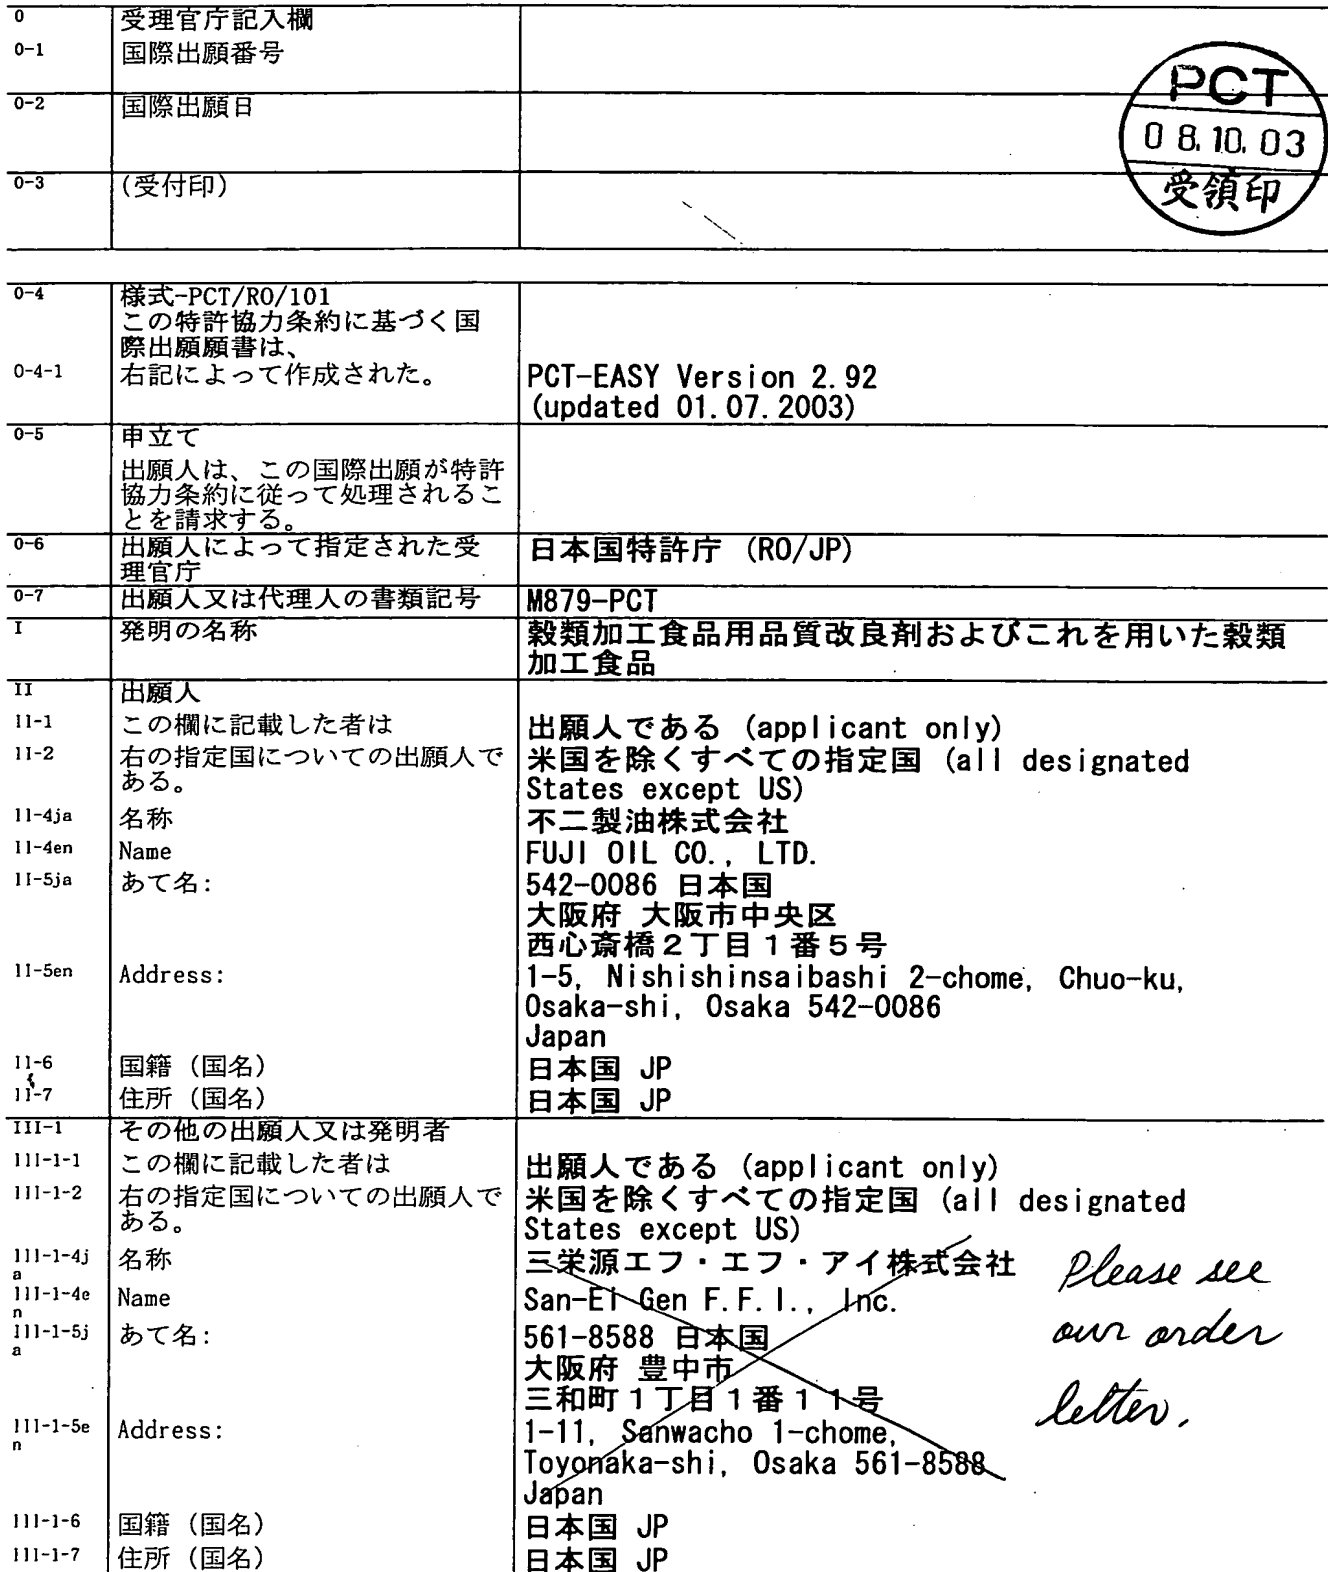 0 受理官庁記入欄
0-1 国際出願番号
0-2 国際出願日
PCT
08.10.03
受領印
0-3 (受付印)
0-4 様式-PCT/RO/101
この特許協力条約に基づく国
際出願願書は、
0-4-1 右記によって作成された。 PCT-EASY Version 2.92
(updated 01.07.2003)
0-5 申立て
出願人は、この国際出願が特許
協力条約に従って処理されるこ
とを請求する。
0-6 出願人によって指定された受 日本国特許庁 (RO/JP)
理官庁
0-7 出願人又は代理人の書類記号 M879-PCT
I 発明の名称 穀類加工食品用品質改良剤およびこれを用いた穀類
加工食品
II 出願人
II-1 この欄に記載した者は 出願人である (applicant only)
II-2 右の指定国についての出願人で 米国を除くすべての指定国 (all designated
ある。 States except US)
II-4ja 名称 不二製油株式会社
II-4en Name FUJI OIL CO., LTD.
II-5ja あて名: 542-0086 日本国
大阪府 大阪市中央区
西心斎橋2丁目1番5号
II-5en Address: 1-5, Nishishinsaibashi 2-chome, Chuo-ku,
Osaka-shi, Osaka 542-0086
Japan
II-6 国籍 (国名) 日本国 JP
II-7 住所 (国名) 日本国 JP
III-1 その他の出願人又は発明者
III-1-1 この欄に記載した者は 出願人である (applicant only)
III-1-2 右の指定国についての出願人で 米国を除くすべての指定国 (all designated
ある。 States except US)
III-1-4ja 名称 三栄源エフ・エフ・アイ株式会社
III-1-4en Name San-Ei Gen F.F.I., Inc.
III-1-5ja あて名: 561-8588 日本国
大阪府 豊中市
三和町1丁目1番11号
III-1-5en Address: 1-11, Sanwacho 1-chome,
Toyonaka-shi, Osaka 561-8588
Japan
Please see
our order
letter.
III-1-6 国籍 (国名) 日本国 JP
III-1-7 住所 (国名) 日本国 JP